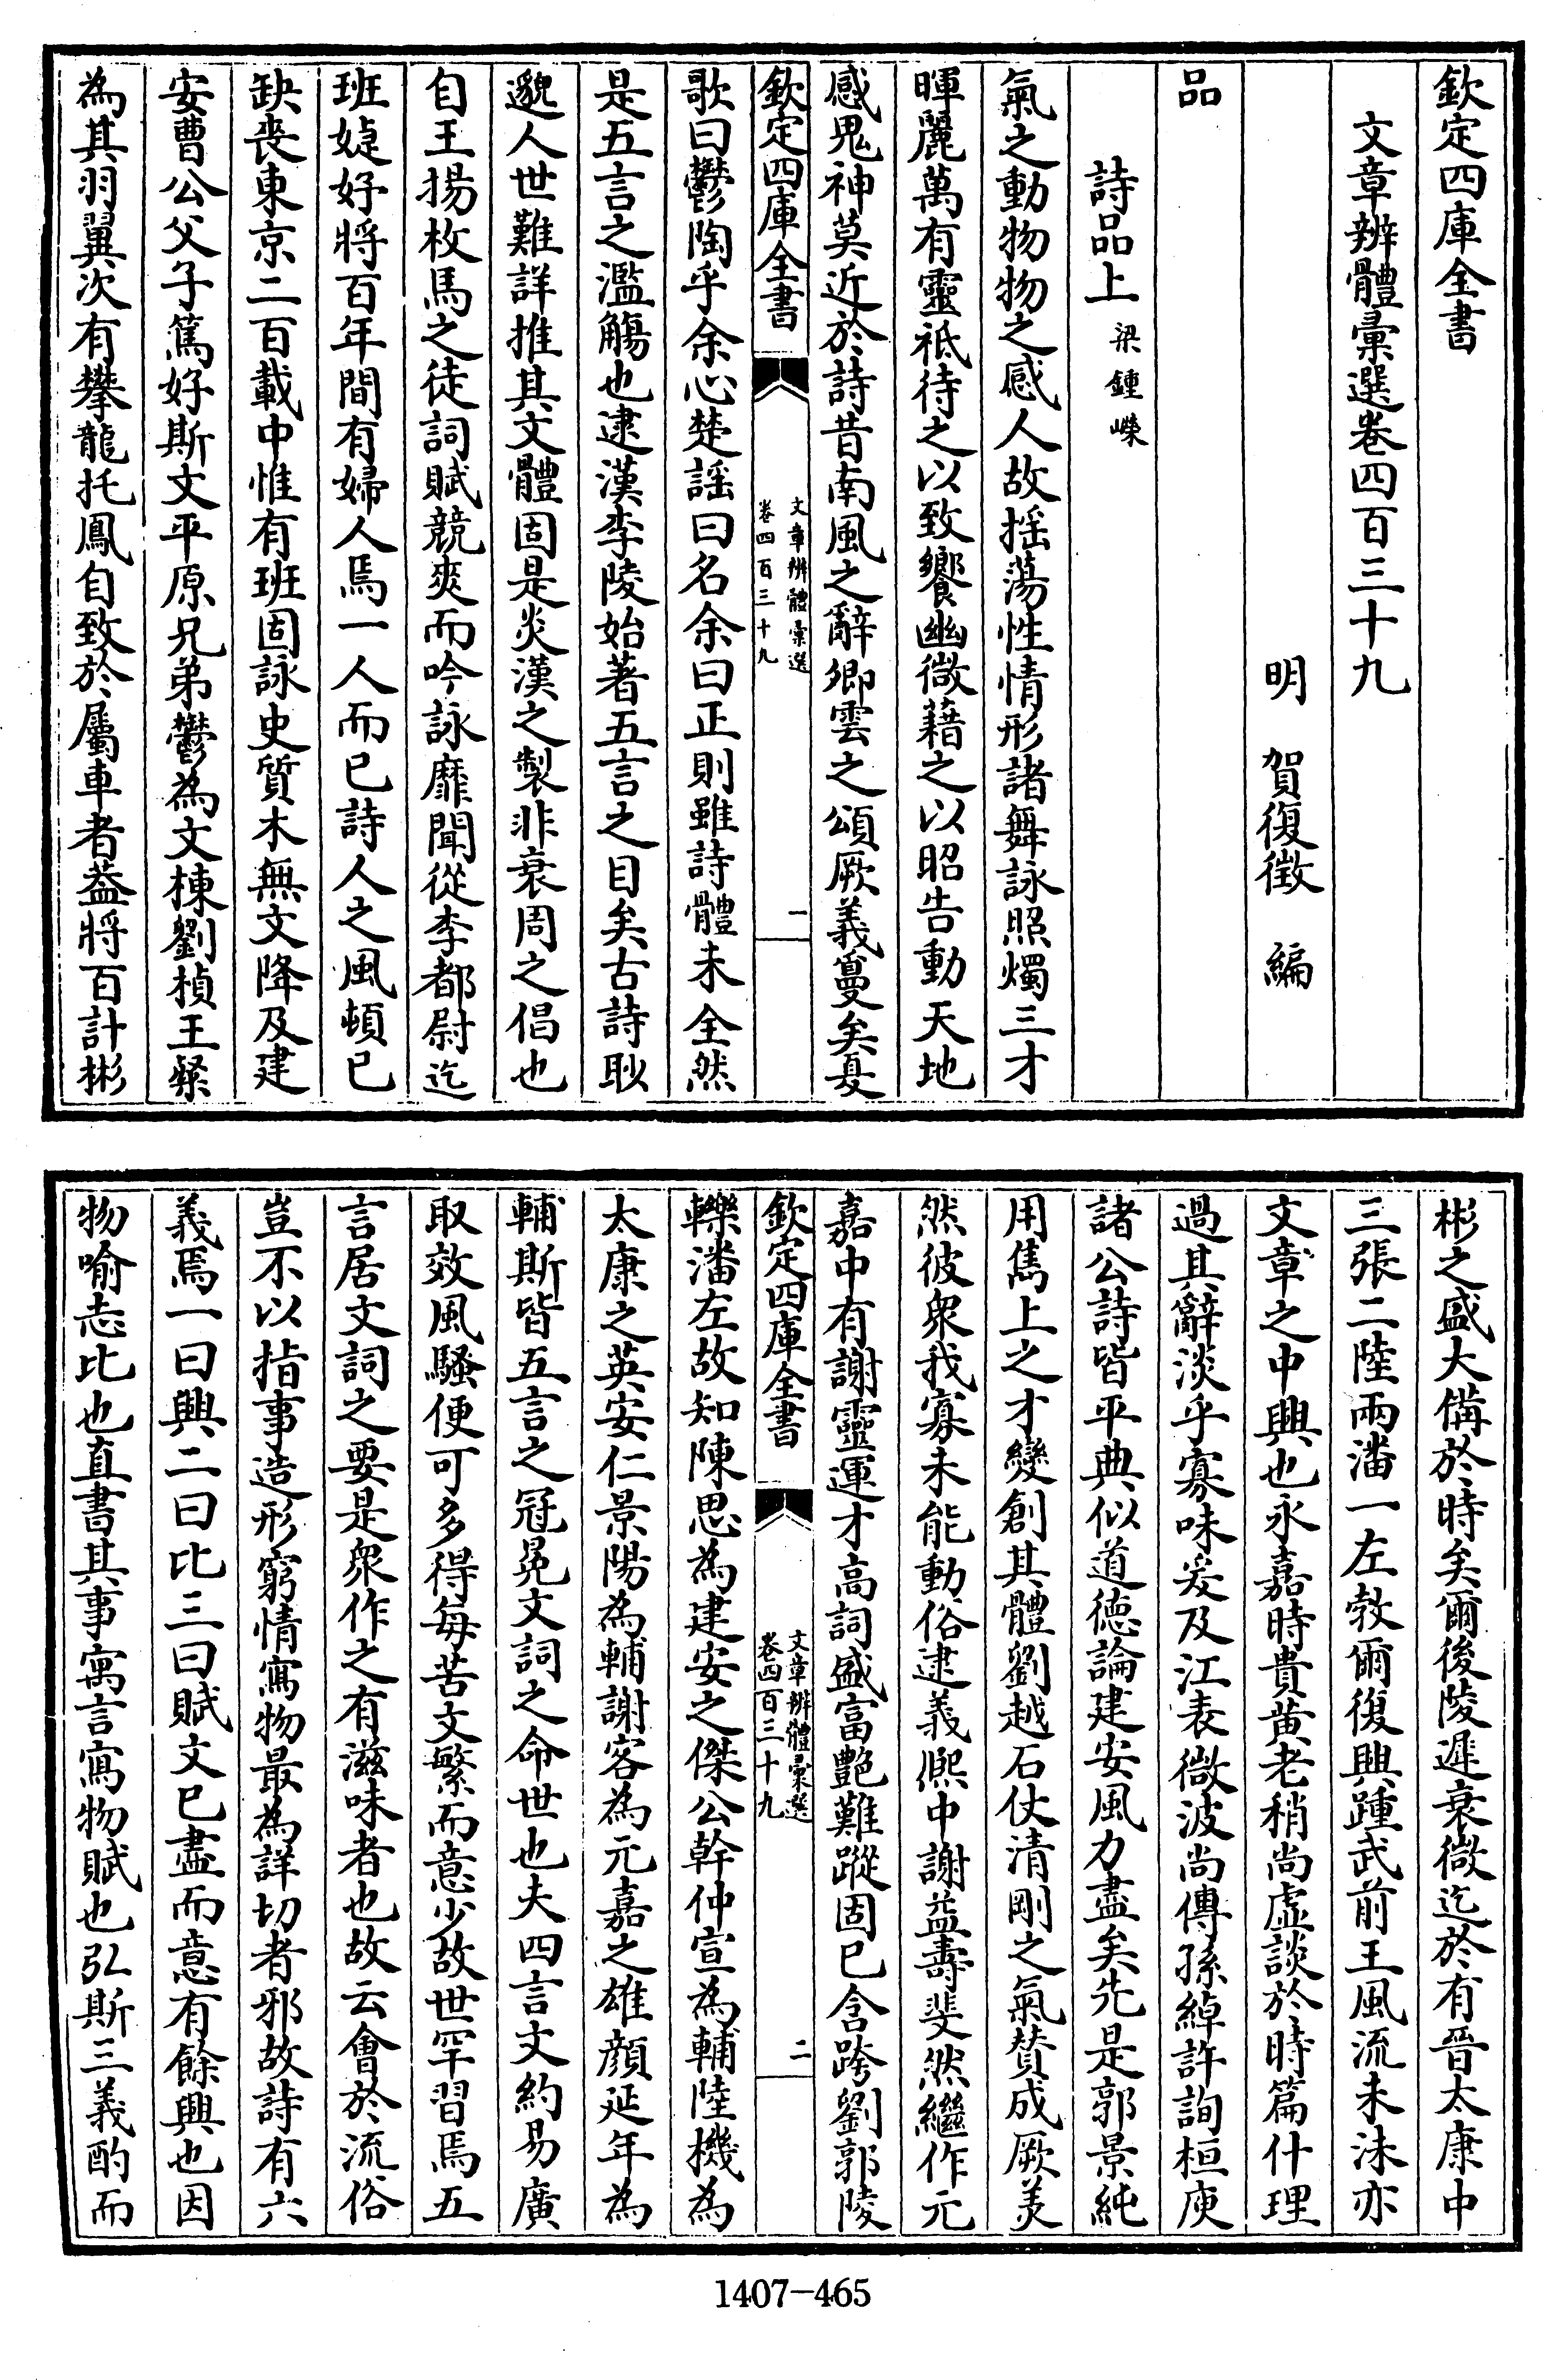 欽定四庫全書
文章辨體彙選卷四百三十九
明　賀復徵　編
品
詩品上 梁鍾嶸
氣之動物物之感人故揺蕩性情形諸舞詠照燭三才
暉麗萬有靈祇待之以致饗幽微藉之以昭告動天地
感鬼神莫近於詩昔南風之辭卿雲之頌厥義敻矣夏
欽定四庫全書
文章辨體彙選
卷四百三十九
一
歌曰鬱陶乎余心楚謡曰名余曰正則雖詩體未全然
是五言之濫觴也逮漢李陵始著五言之目矣古詩眇
邈人世難詳推其文體固是炎漢之製非衰周之倡也
自王揚枚馬之徒詞賦競爽而吟詠靡聞從李都尉迄
班婕妤將百年間有婦人焉一人而已詩人之風頓已
缺喪東京二百載中惟有班固詠史質木無文降及建
安曹公父子篤好斯文平原兄弟鬱為文棟劉楨王粲
為其羽翼次有攀龍托鳳自致於屬車者蓋將百計彬
彬之盛大備於時矣爾後陵遲衰微迄於有晉太康中
三張二陸兩潘一左勃爾復興踵武前王風流未沫亦
文章之中興也永嘉時貴黄老稍尚虚談於時篇什理
過其辭淡乎寡味爰及江表微波尚傳孫綽許詢桓庾
諸公詩皆平典似道徳論建安風力盡矣先是郭景純
用雋上之才變創其體劉越石仗清剛之氣賛成厥美
然彼衆我寡未能動俗逮義熙中謝益壽斐然繼作元
嘉中有謝靈運才高詞盛富艶難蹤固已含跨劉郭陵
欽定四庫全書
文章辨體彙選
卷四百三十九
二
轢潘左故知陳思為建安之傑公幹仲宣為輔陸機為
太康之英安仁景陽為輔謝客為元嘉之雄顔延年為
輔斯皆五言之冠冕文詞之命世也夫四言文約易廣
取效風騷便可多得毎苦文繁而意少故世罕習焉五
言居文詞之要是衆作之有滋味者也故云會於流俗
豈不以指事造形窮情寫物最為詳切者邪故詩有六
義焉一曰興二曰比三曰賦文已盡而意有餘興也因
物喻志比也直書其事寓言寫物賦也弘斯三義酌而
1407-465